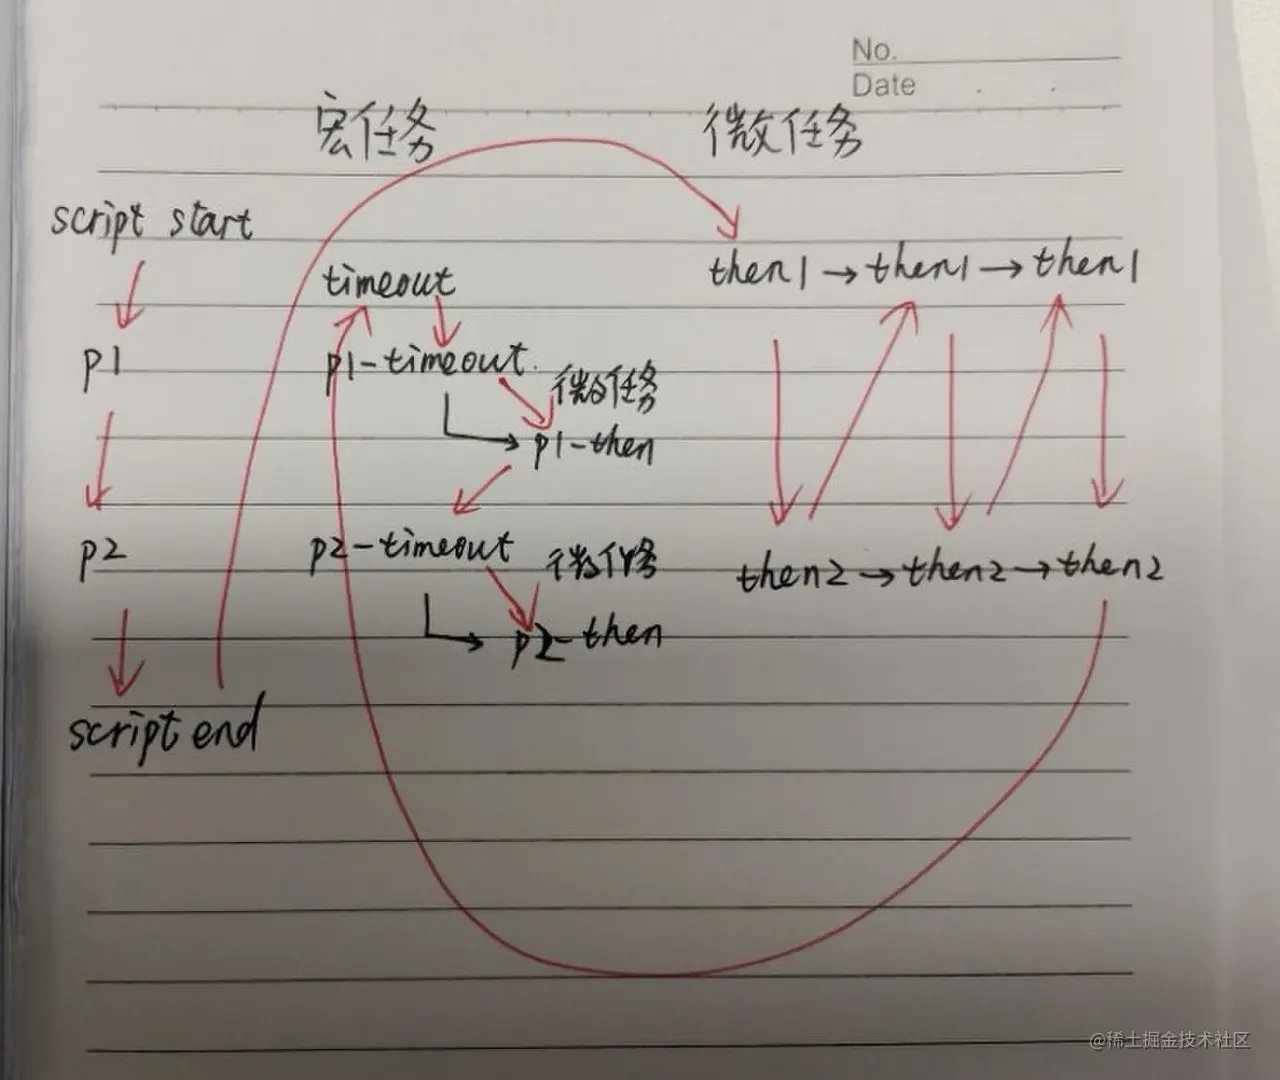 No.
Date
宏任务
微任务
script start
timeout
then1→then1→then1
p1
p1-timeout
微任务
p1-then
p2
p2-timeout
微任务
then2→then2→then2
p2-then
script end
@稀土掘金技术社区